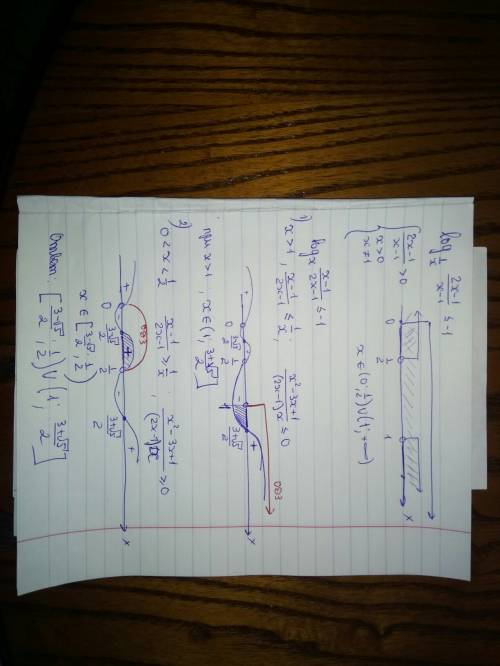 log_{1/x} (2x-1)/(x-1) ≤ -1
{ (2x-1)/(x-1) > 0
x > 0
x ≠ 1
0 1/2 1 x
x ∈ (0; 1/2) ∪ (1; +∞)
log_x (x-1)/(2x-1) ≤ -1
1) x > 1, (x-1)/(2x-1) ≤ 1/x; (x²-3x+1)/((2x-1)x) ≤ 0
ОДЗ
+ - + - +
0 (3-√5)/2 1/2 1 (3+√5)/2 x
при x > 1: x ∈ (1; (3+√5)/2]
2) 0 < x < 1/2 (x-1)/(2x-1) ≥ 1/x; (x²-3x+1)/((2x-1)x) ≥ 0
ОДЗ
+ - + - +
0 (3-√5)/2 1/2 (3+√5)/2 x
x ∈ [(3-√5)/2; 1/2)
Ответ: [(3-√5)/2; 1/2) ∪ (1; (3+√5)/2]